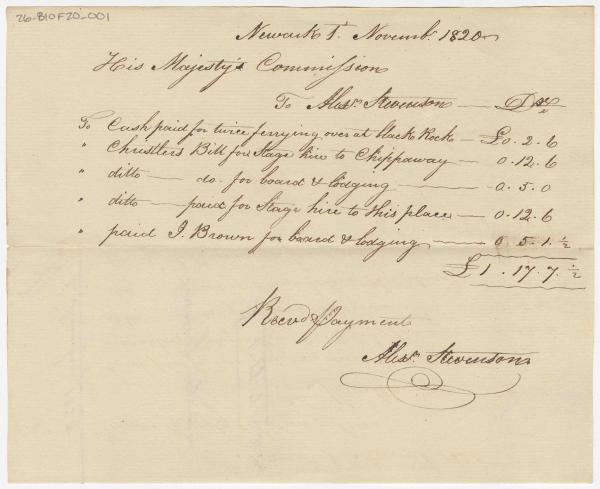 26-B10F20-001
Newark 1st. Novembr. 1820
His Majesty's Commission
To Alexr. Stevenson — Dr.
To Cash paid for twice ferrying over at black Rock — £0.2.6
" Chrustlers Bill for Stage hire to Chippaway — 0.12.6
" ditto — do. for board & lodging — 0.5.0
" ditto — paid for Stage hire to this place — 0.12.6
" paid J. Brown for board & lodging — 0.5.1.½
£1.17.7.½
Recvd. Payment
Alexr. Stevenson